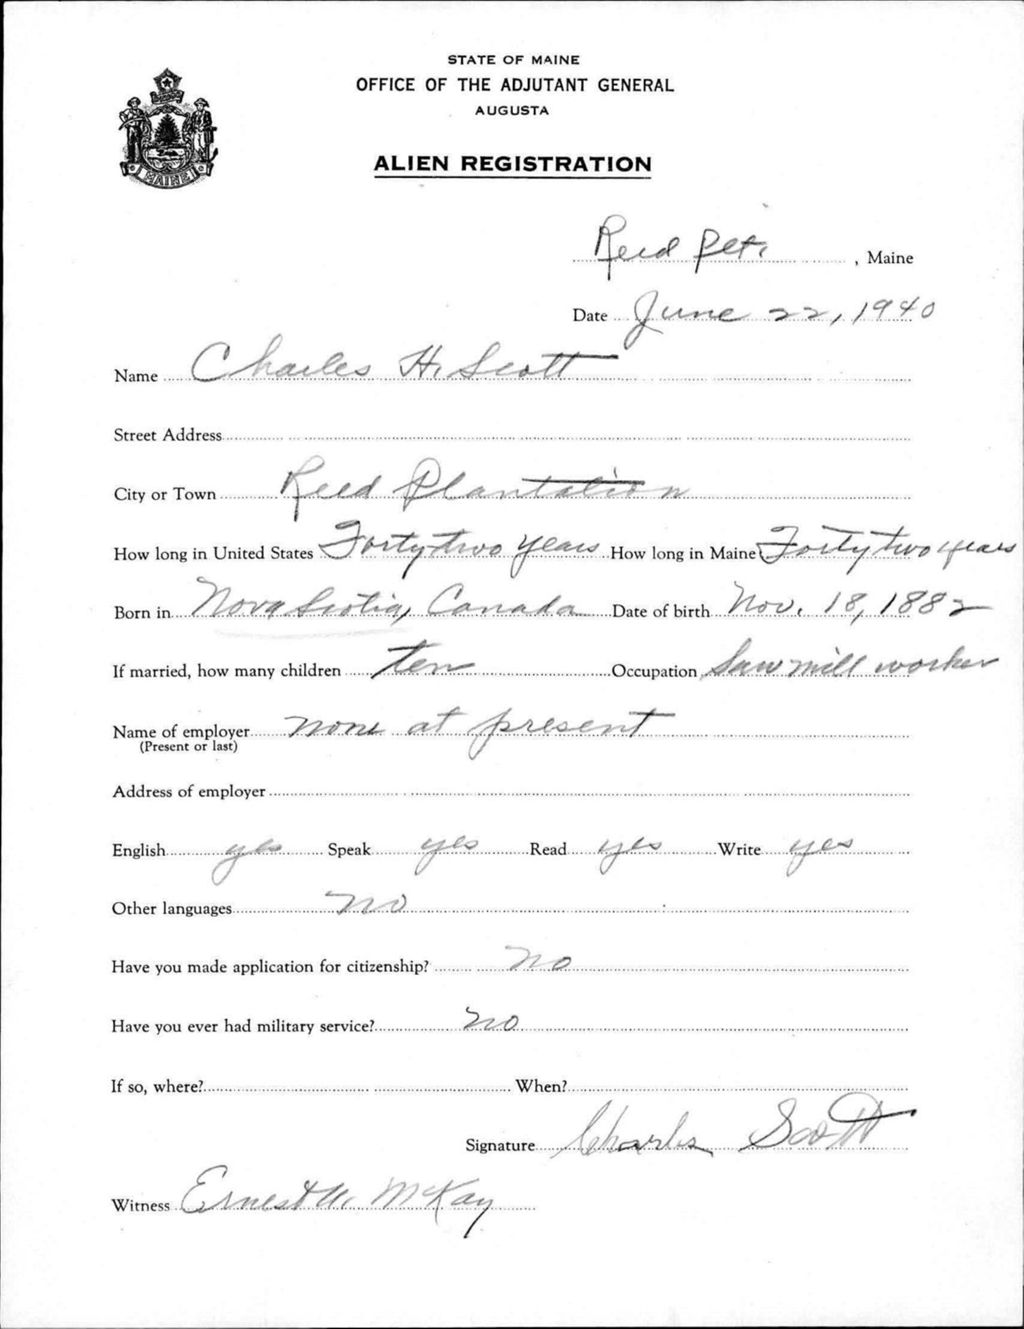 STATE OF MAINE
OFFICE OF THE ADJUTANT GENERAL
AUGUSTA
ALIEN REGISTRATION
MAINE
Reed Plt. , Maine
Date June 22, 1940
Name Charles H. Scott
Street Address
City or Town Reed Plantation
How long in United States Forty two years How long in Maine Forty two years
Born in Nova Scotia, Canada Date of birth Nov. 18, 1882
If married, how many children ten Occupation Saw mill worker
Name of employer none at present
(Present or last)
Address of employer
English yes Speak yes Read yes Write yes
Other languages no
Have you made application for citizenship? no
Have you ever had military service? no
If so, where? When?
Signature Charles Scott
Witness Ernest McKay